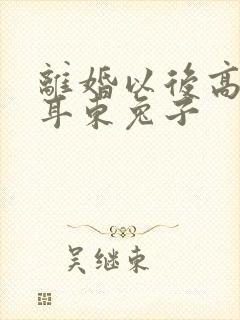 離婚以後高
耳東兔子
吴继東